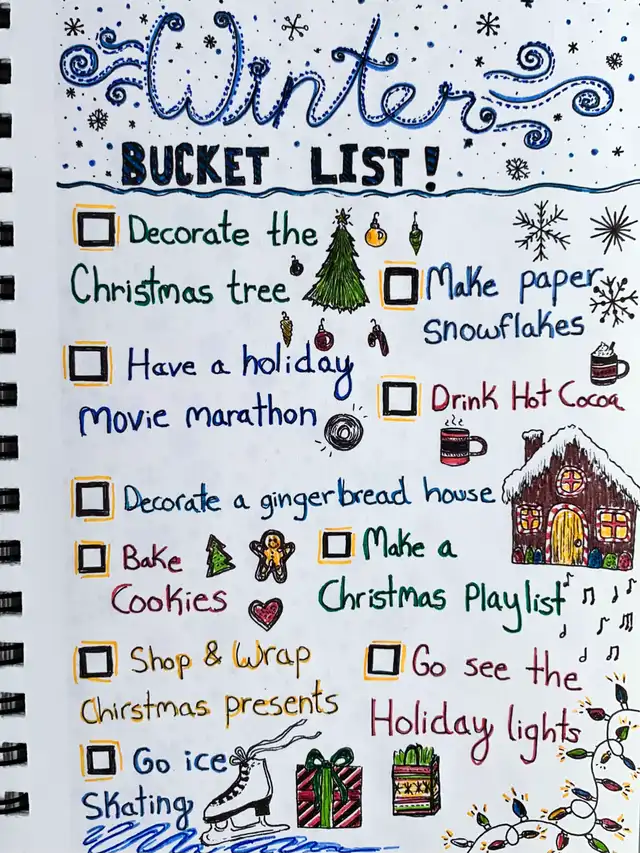 Winter
BUCKET LIST!
Decorate the
Christmas tree
Make paper
snowflakes
Have a holiday
movie marathon
Drink Hot Cocoa
Decorate a gingerbread house
Bake
Cookies
Make a
Christmas Playlist
Shop & Wrap
Chirstmas presents
Go see the
Holiday lights
Go ice
Skating